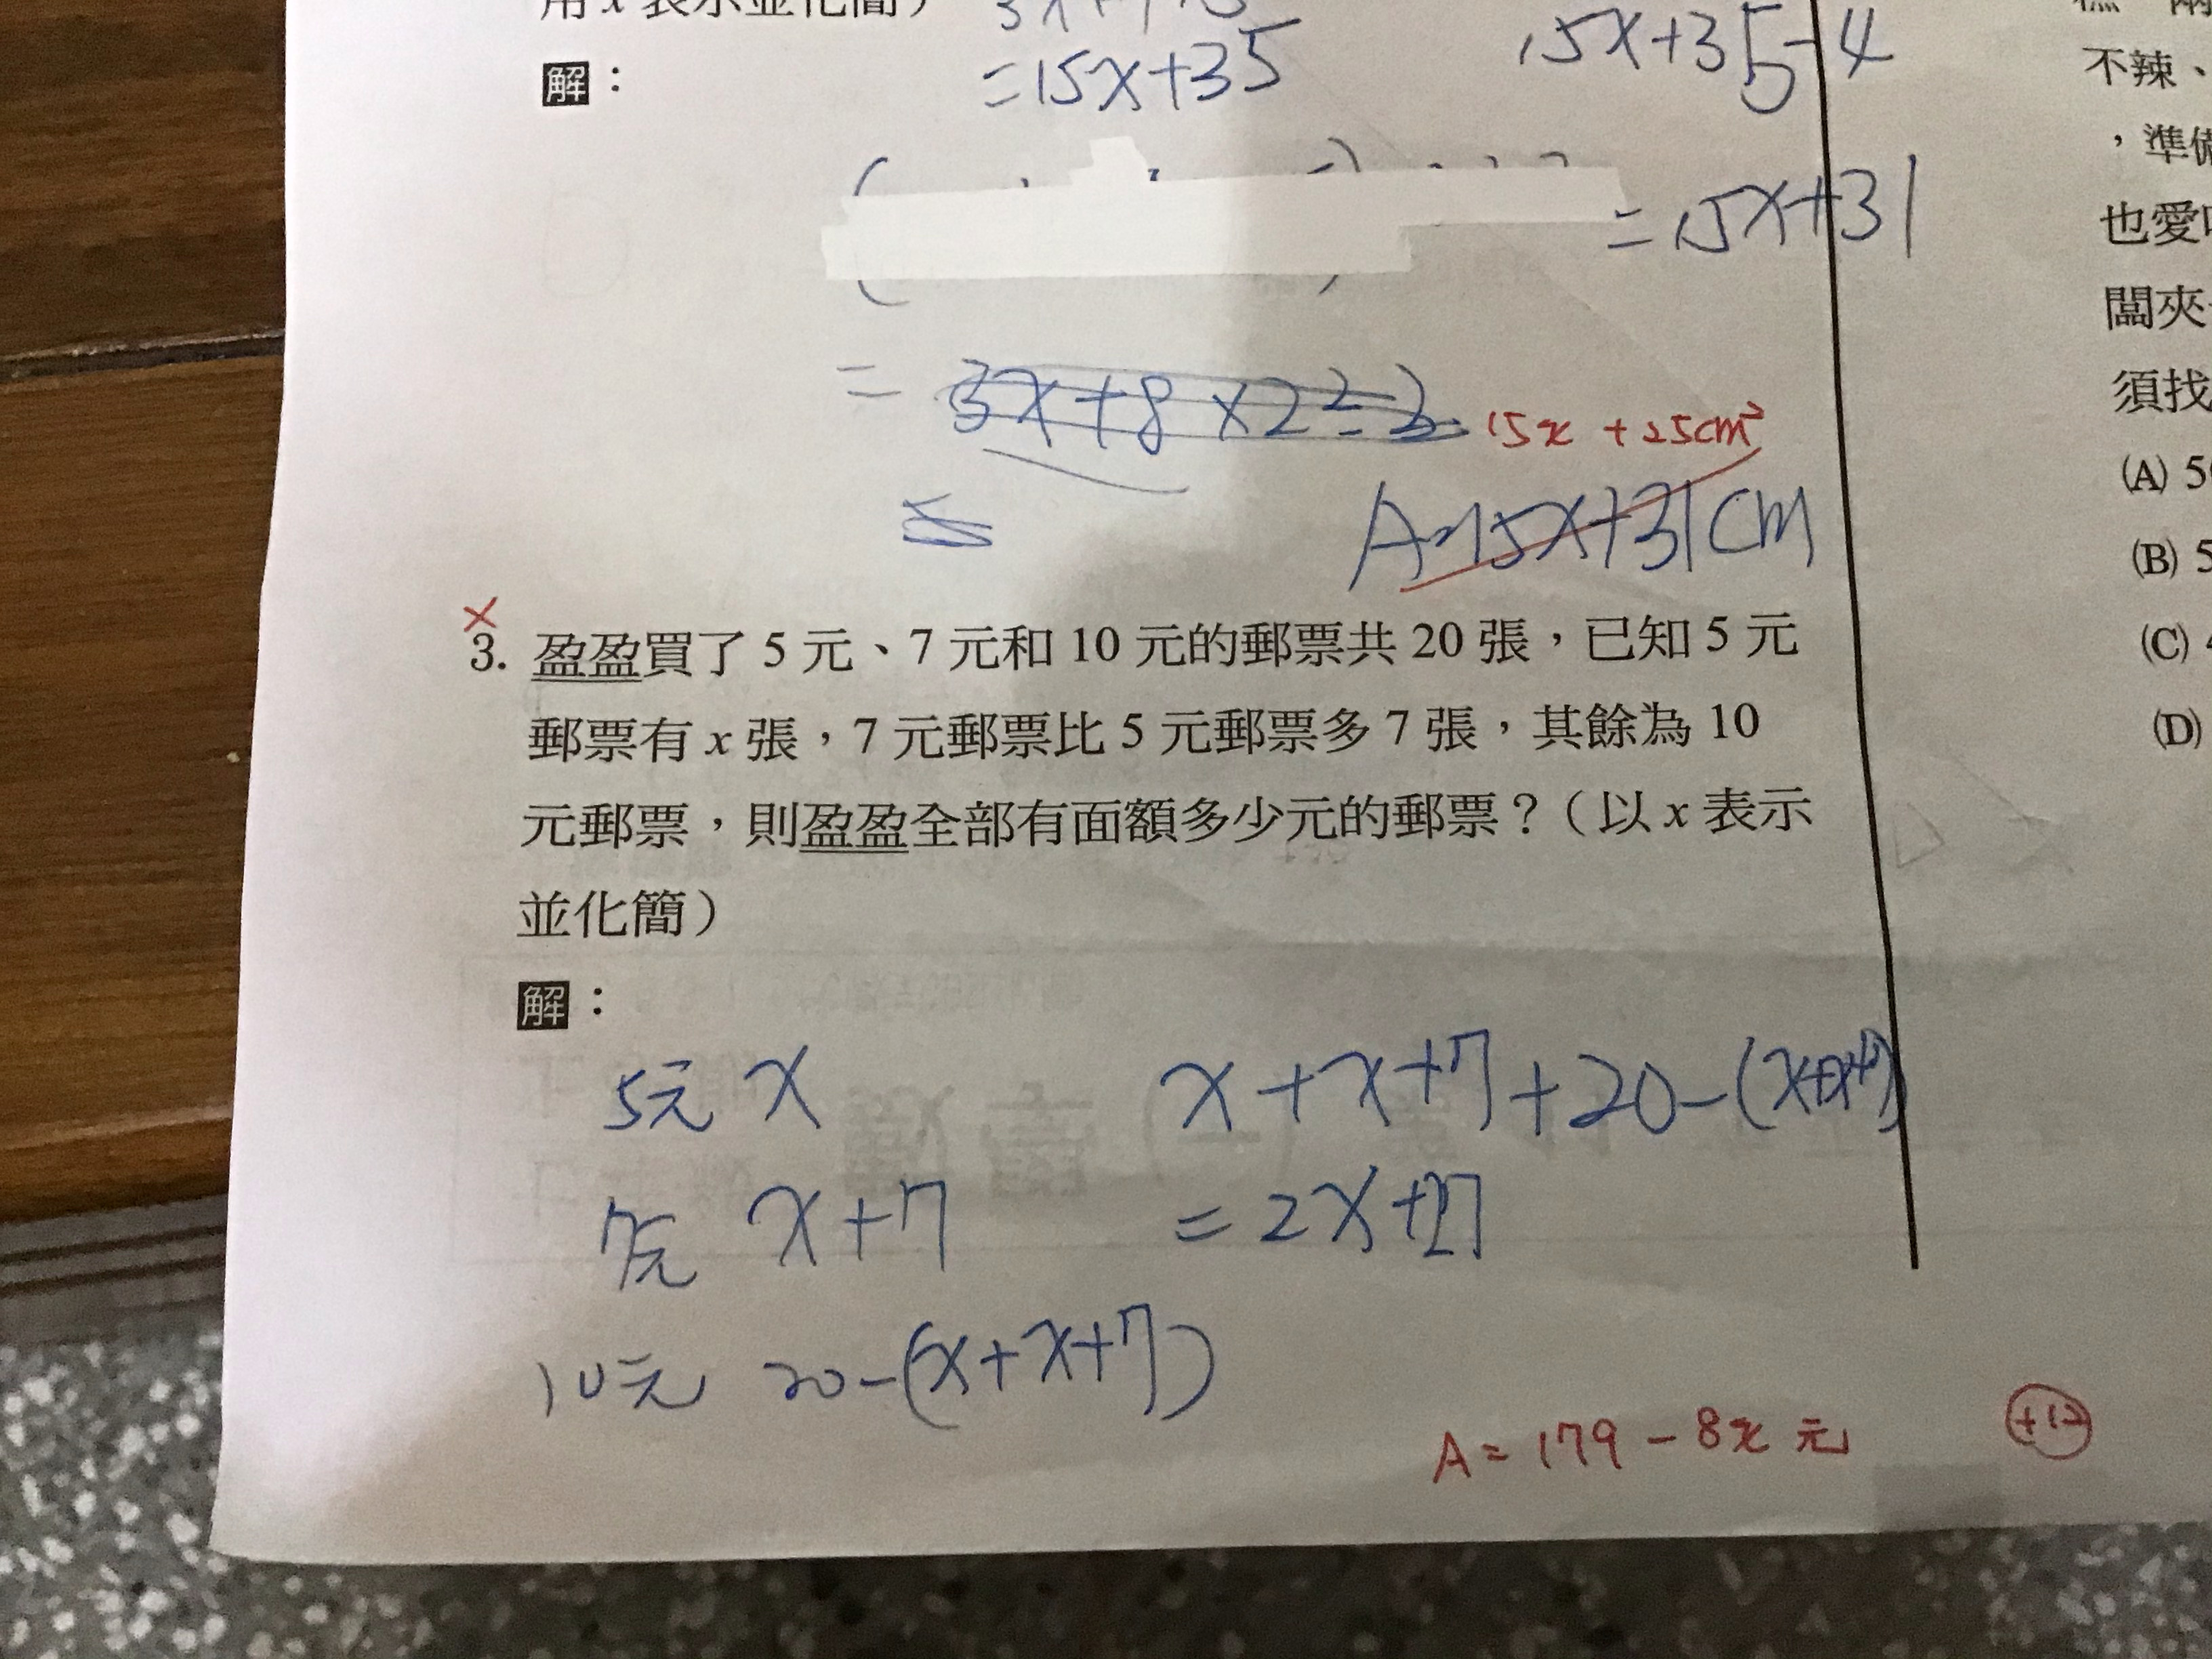 用 x 表示並化簡）
=15x+35
15x+35-4
解：
=15x+31
= 3x+8×2
15x +25cm²
A=15x+31cm
3. 盈盈買了 5 元、7 元和 10 元的郵票共 20 張，已知 5 元
郵票有 x 張，7 元郵票比 5 元郵票多 7 張，其餘為 10
元郵票，則盈盈全部有面額多少元的郵票？（以 x 表示
並化簡）
解：
5元 x
x+x+7+20-(x+x+7)
7元 x+7
=2x+27
10元 20-(x+x+7)
A= 179-8x 元
+12
不辣、
，準備
也愛
闆夾
須找
(A) 5
(B) 5
(C)
(D)